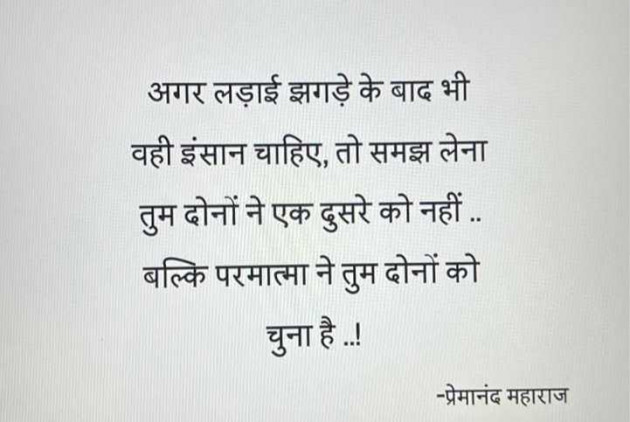 अगर लड़ाई झगड़े के बाद भी
वही इंसान चाहिए, तो समझ लेना
तुम दोनों ने एक दुसरे को नहीं ..
बल्कि परमात्मा ने तुम दोनों को
चुना है ..!
-प्रेमानंद महाराज